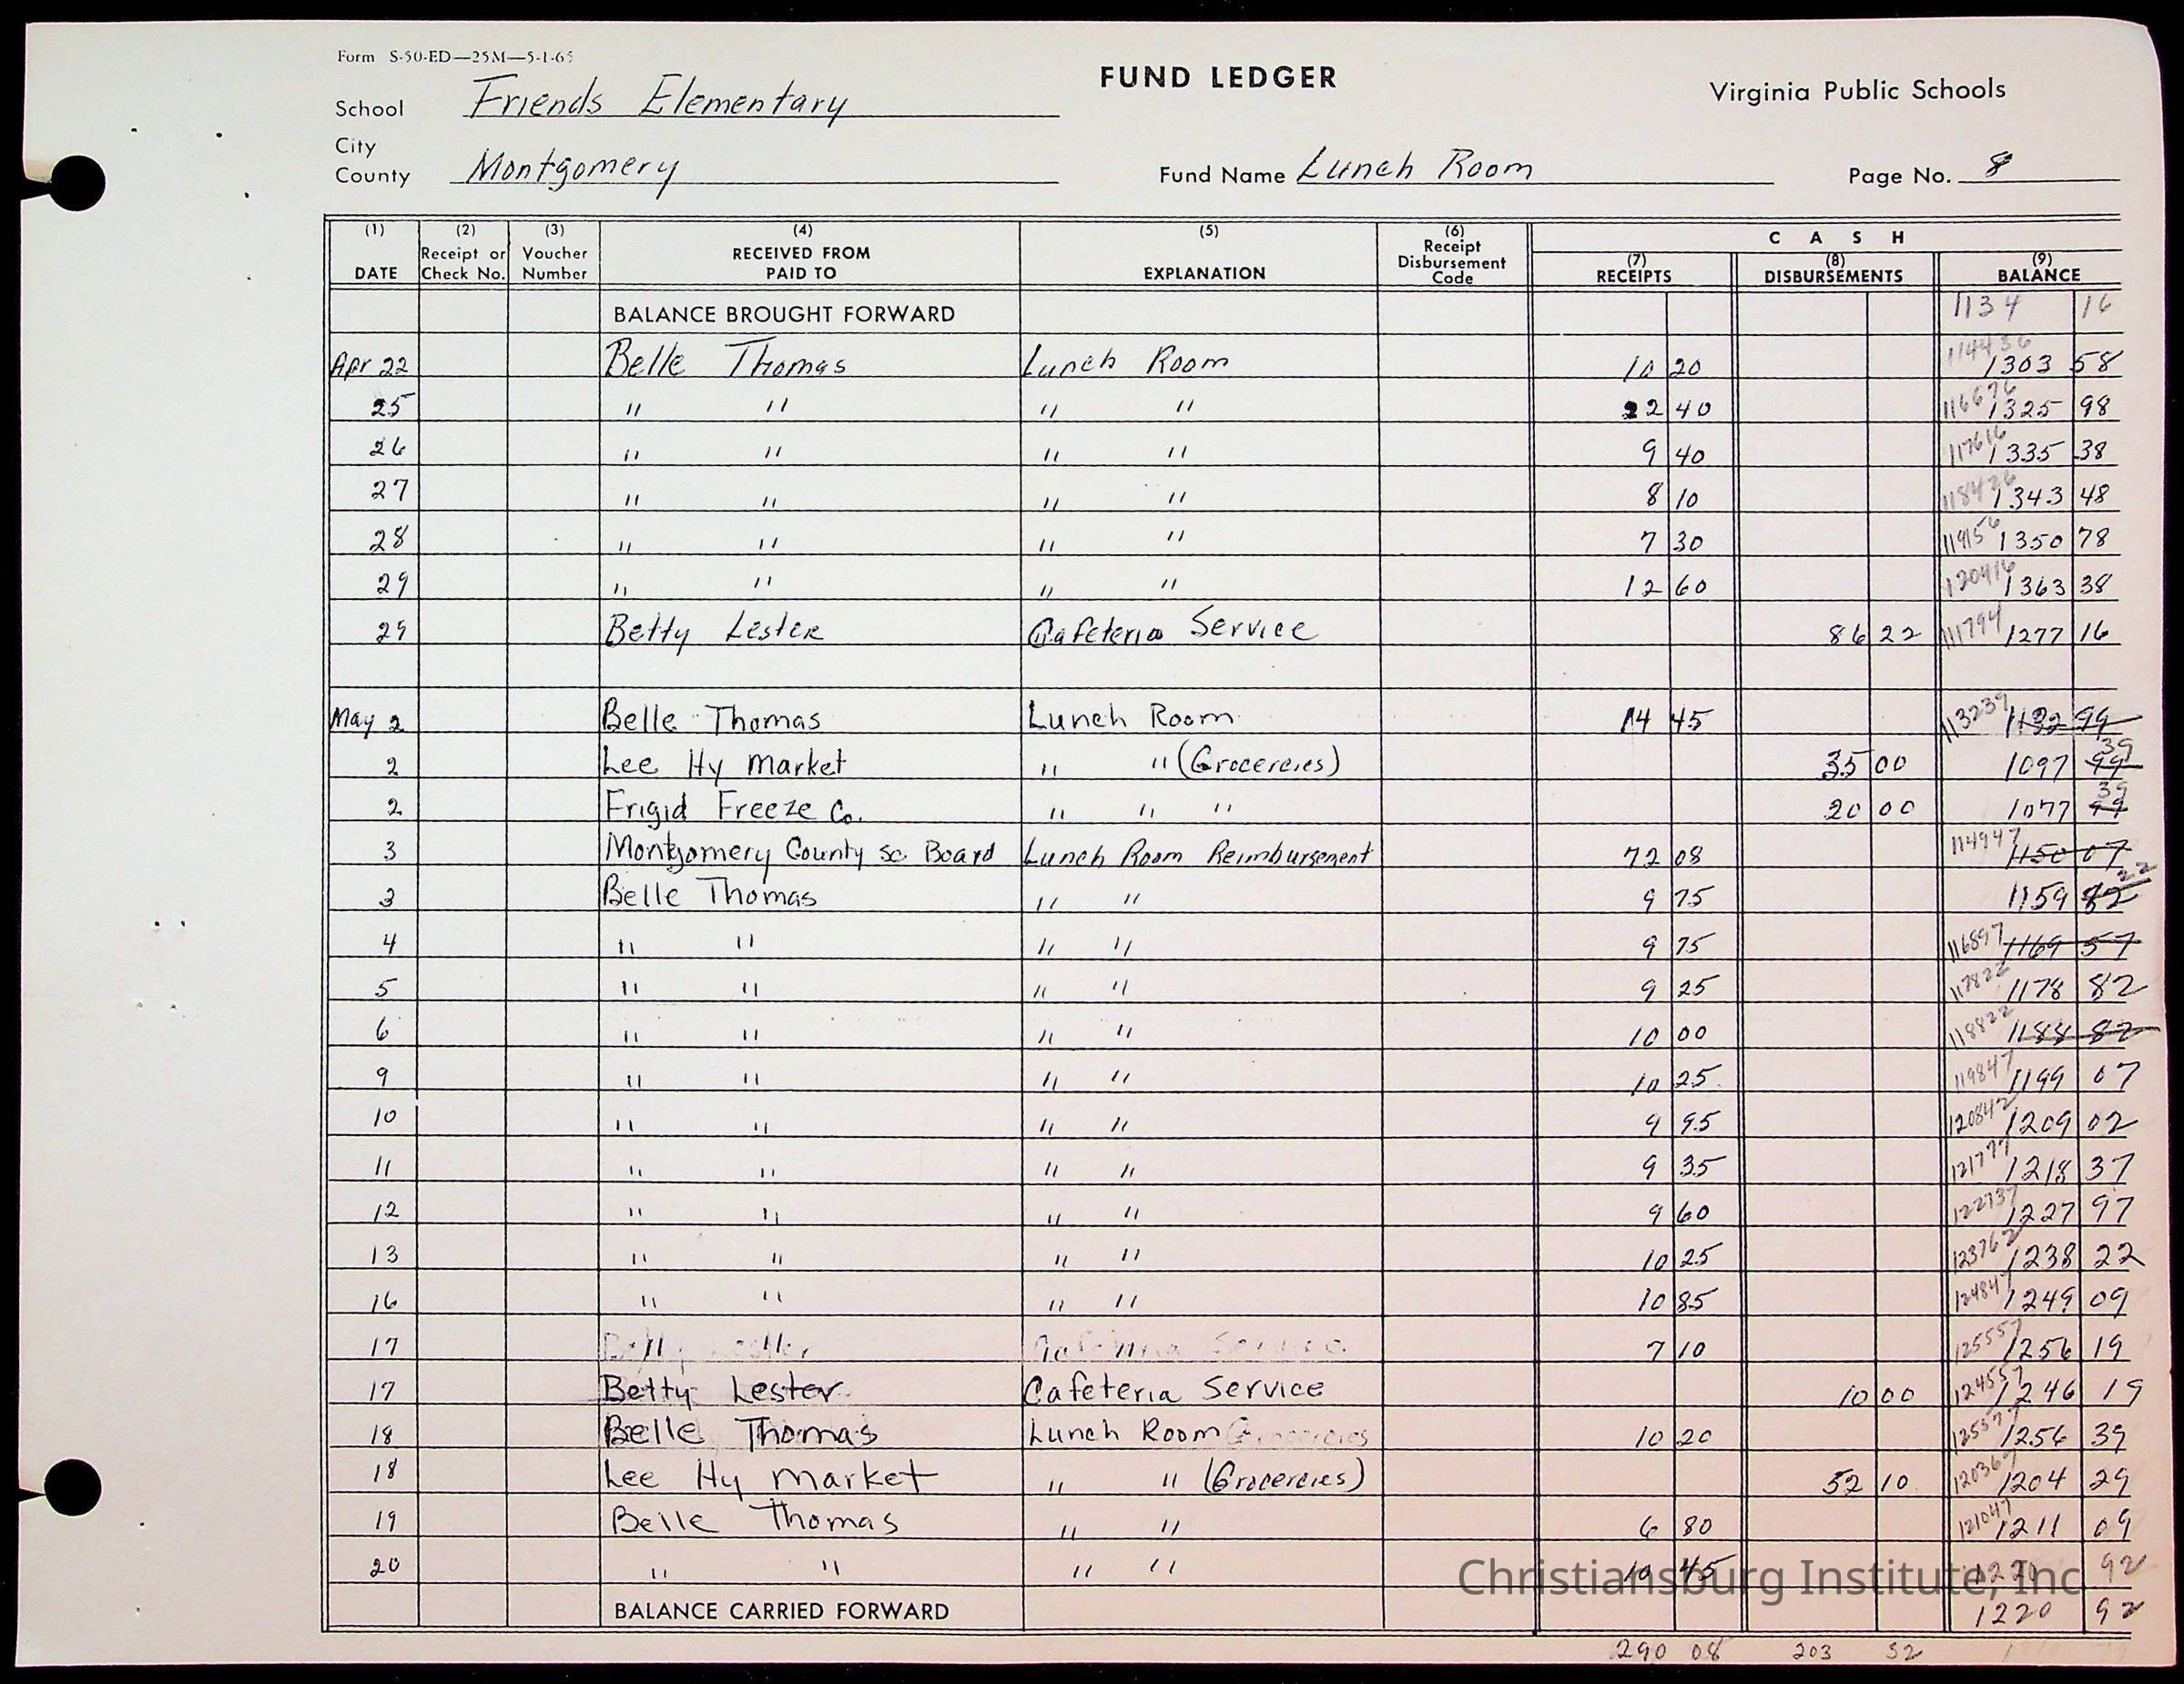 Form S-50-ED—25M—5-1-65
FUND LEDGER
Virginia Public Schools
School Friends Elementary
City
County Montgomery
Fund Name Lunch Room
Page No. 8
(1) DATE (2) Receipt or Check No. (3) Voucher Number (4) RECEIVED FROM PAID TO (5) EXPLANATION (6) Receipt Disbursement Code CASH (7) RECEIPTS (8) DISBURSEMENTS (9) BALANCE
BALANCE BROUGHT FORWARD 1134 16
Apr 22 Belle Thomas Lunch Room 10 20 114436 1303 58
25 " " " " 22 40 116676 1325 98
26 " " " " 9 40 117616 1335 38
27 " " " " 8 10 118426 1343 48
28 " " " " 7 30 119156 1350 78
29 " " " " 12 60 120416 1363 38
29 Betty Lester Cafeteria Service 86 22 111794 1277 16
May 2 Belle Thomas Lunch Room 14 45 113239 1132 99
2 Lee Hy Market " " (Grocereies) 35 00 1097 99 39
2 Frigid Freeze Co. " " " 20 00 1077 99 39
3 Montgomery County Sc Board Lunch Room Reimbursement 72 08 114947 1150 07
3 Belle Thomas " " 9 75 1159 82 22
4 " " " " 9 75 116897 1169 57
5 " " " " 9 25 117822 1178 82
6 " " " " 10 00 118822 1188 82
9 " " " " 10 25 119847 1199 07
10 " " " " 9 95 120842 1209 02
11 " " " " 9 35 121777 1218 37
12 " " " " 9 60 122737 1227 97
13 " " " " 10 25 123762 1238 22
16 " " " " 10 85 124847 1249 09
17 7 10 125557 1256 19
17 Betty Lester Cafeteria Service 10 00 124557 1246 19
18 Belle Thomas Lunch Room 10 20 125577 1256 39
18 Lee Hy Market " " (Grocereies) 52 10 120367 1204 29
19 Belle Thomas " " 6 80 121047 1211 09
20 " " " " 10 45 1220 92
BALANCE CARRIED FORWARD 1220 92
290 08 203 32
Christiansburg Institute, Inc